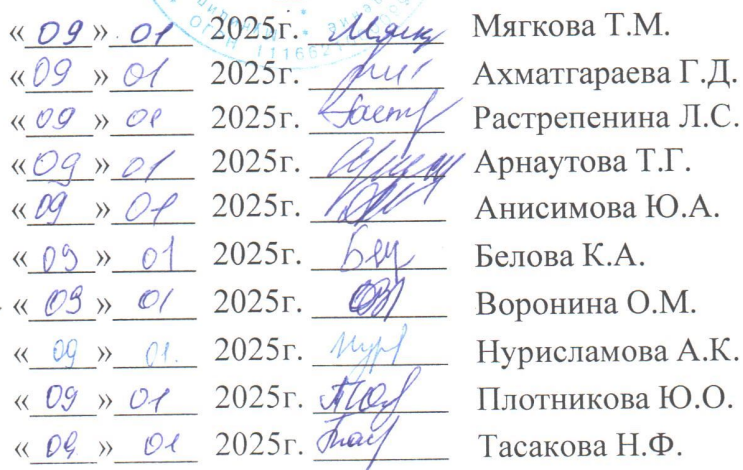 « 09 » 01 2025г. Мягкова Т.М.
« 09 » 01 2025г. Ахматгараева Г.Д.
« 09 » 01 2025г. Растрепенина Л.С.
« 09 » 01 2025г. Арнаутова Т.Г.
« 09 » 01 2025г. Анисимова Ю.А.
« 09 » 01 2025г. Белова К.А.
« 09 » 01 2025г. Воронина О.М.
« 09 » 01. 2025г. Нурисламова А.К.
« 09 » 01 2025г. Плотникова Ю.О.
« 09 » 01 2025г. Тасакова Н.Ф.